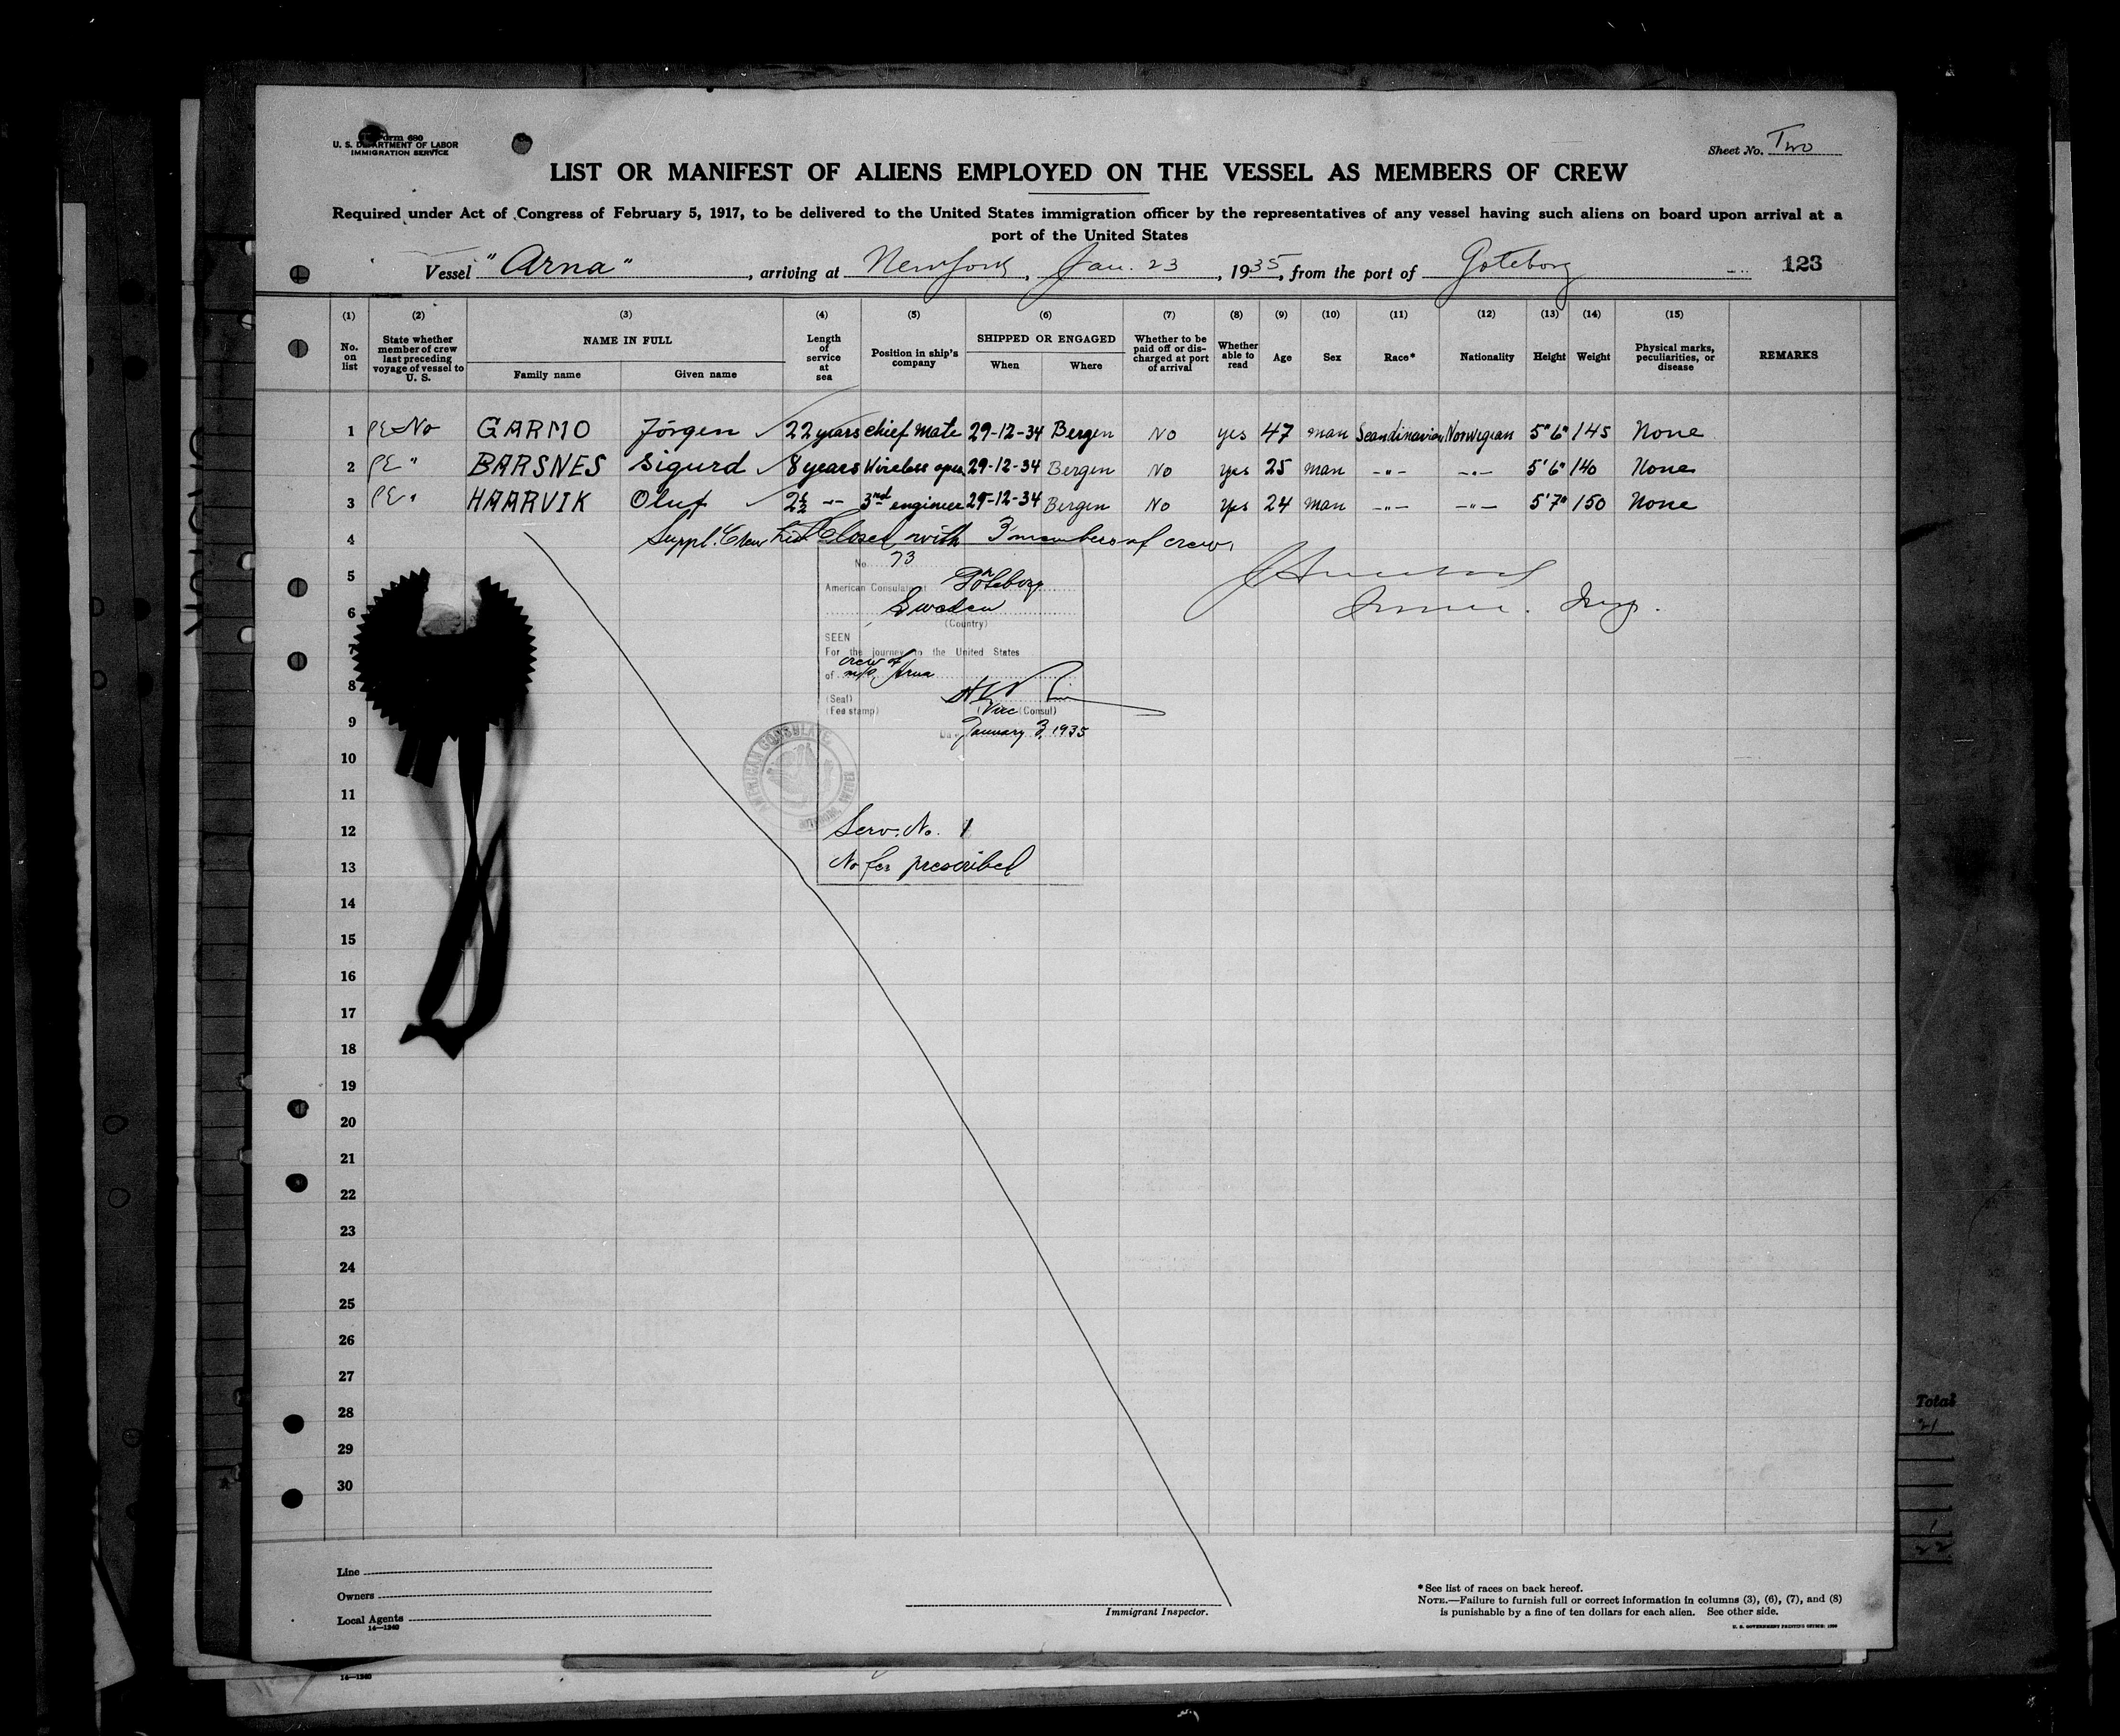 Form 680
U. S. DEPARTMENT OF LABOR
IMMIGRATION SERVICE
Sheet No. Two
LIST OR MANIFEST OF ALIENS EMPLOYED ON THE VESSEL AS MEMBERS OF CREW
Required under Act of Congress of February 5, 1917, to be delivered to the United States immigration officer by the representatives of any vessel having such aliens on board upon arrival at a
port of the United States
Vessel "Arna", arriving at New York, Jan. 23, 1935, from the port of Göteborg 123
(1) (2) (3) (4) (5) (6) (7) (8) (9) (10) (11) (12) (13) (14) (15)
No. on list State whether member of crew last preceding voyage of vessel to U. S. NAME IN FULL Family name Given name Length of service at sea Position in ship's company SHIPPED OR ENGAGED When Where Whether to be paid off or discharged at port of arrival Whether able to read Age Sex Race* Nationality Height Weight Physical marks, peculiarities, or disease REMARKS
1 PE No GARMO Jörgen 22 years chief mate 29-12-34 Bergen No yes 47 man Scandinavian Norwegian 5"6" 145 None
2 PE " BARSNES Sigurd 8 years Wireless oper. 29-12-34 Bergen No yes 25 man -"- -"- 5'6" 140 None
3 PE " HAARVIK Oluf 2½ -"- 3nd engineer 29-12-34 Bergen No yes 24 man -"- -"- 5'7" 150 None
4 Suppl. Crew List Closed with 3 members of crew.
No. 73
5 American Consulate at Göteborg
6 Sweden
(Country)
SEEN
7 For the journey to the United States
crew of
8 of m/s Arna
(Seal)
(Fee stamp) (Vice Consul)
9 January 3, 1935
AMERICAN CONSULATE
10
11
12 Serv. No. 1
13 No fee prescribed
14
15
16
17
18
19
20
21
22
23
24
25
26
27
28
29
30
Total
21
Line
Owners
Local Agents
14—1240
Immigrant Inspector.
*See list of races on back hereof.
NOTE.—Failure to furnish full or correct information in columns (3), (6), (7), and (8)
is punishable by a fine of ten dollars for each alien. See other side.